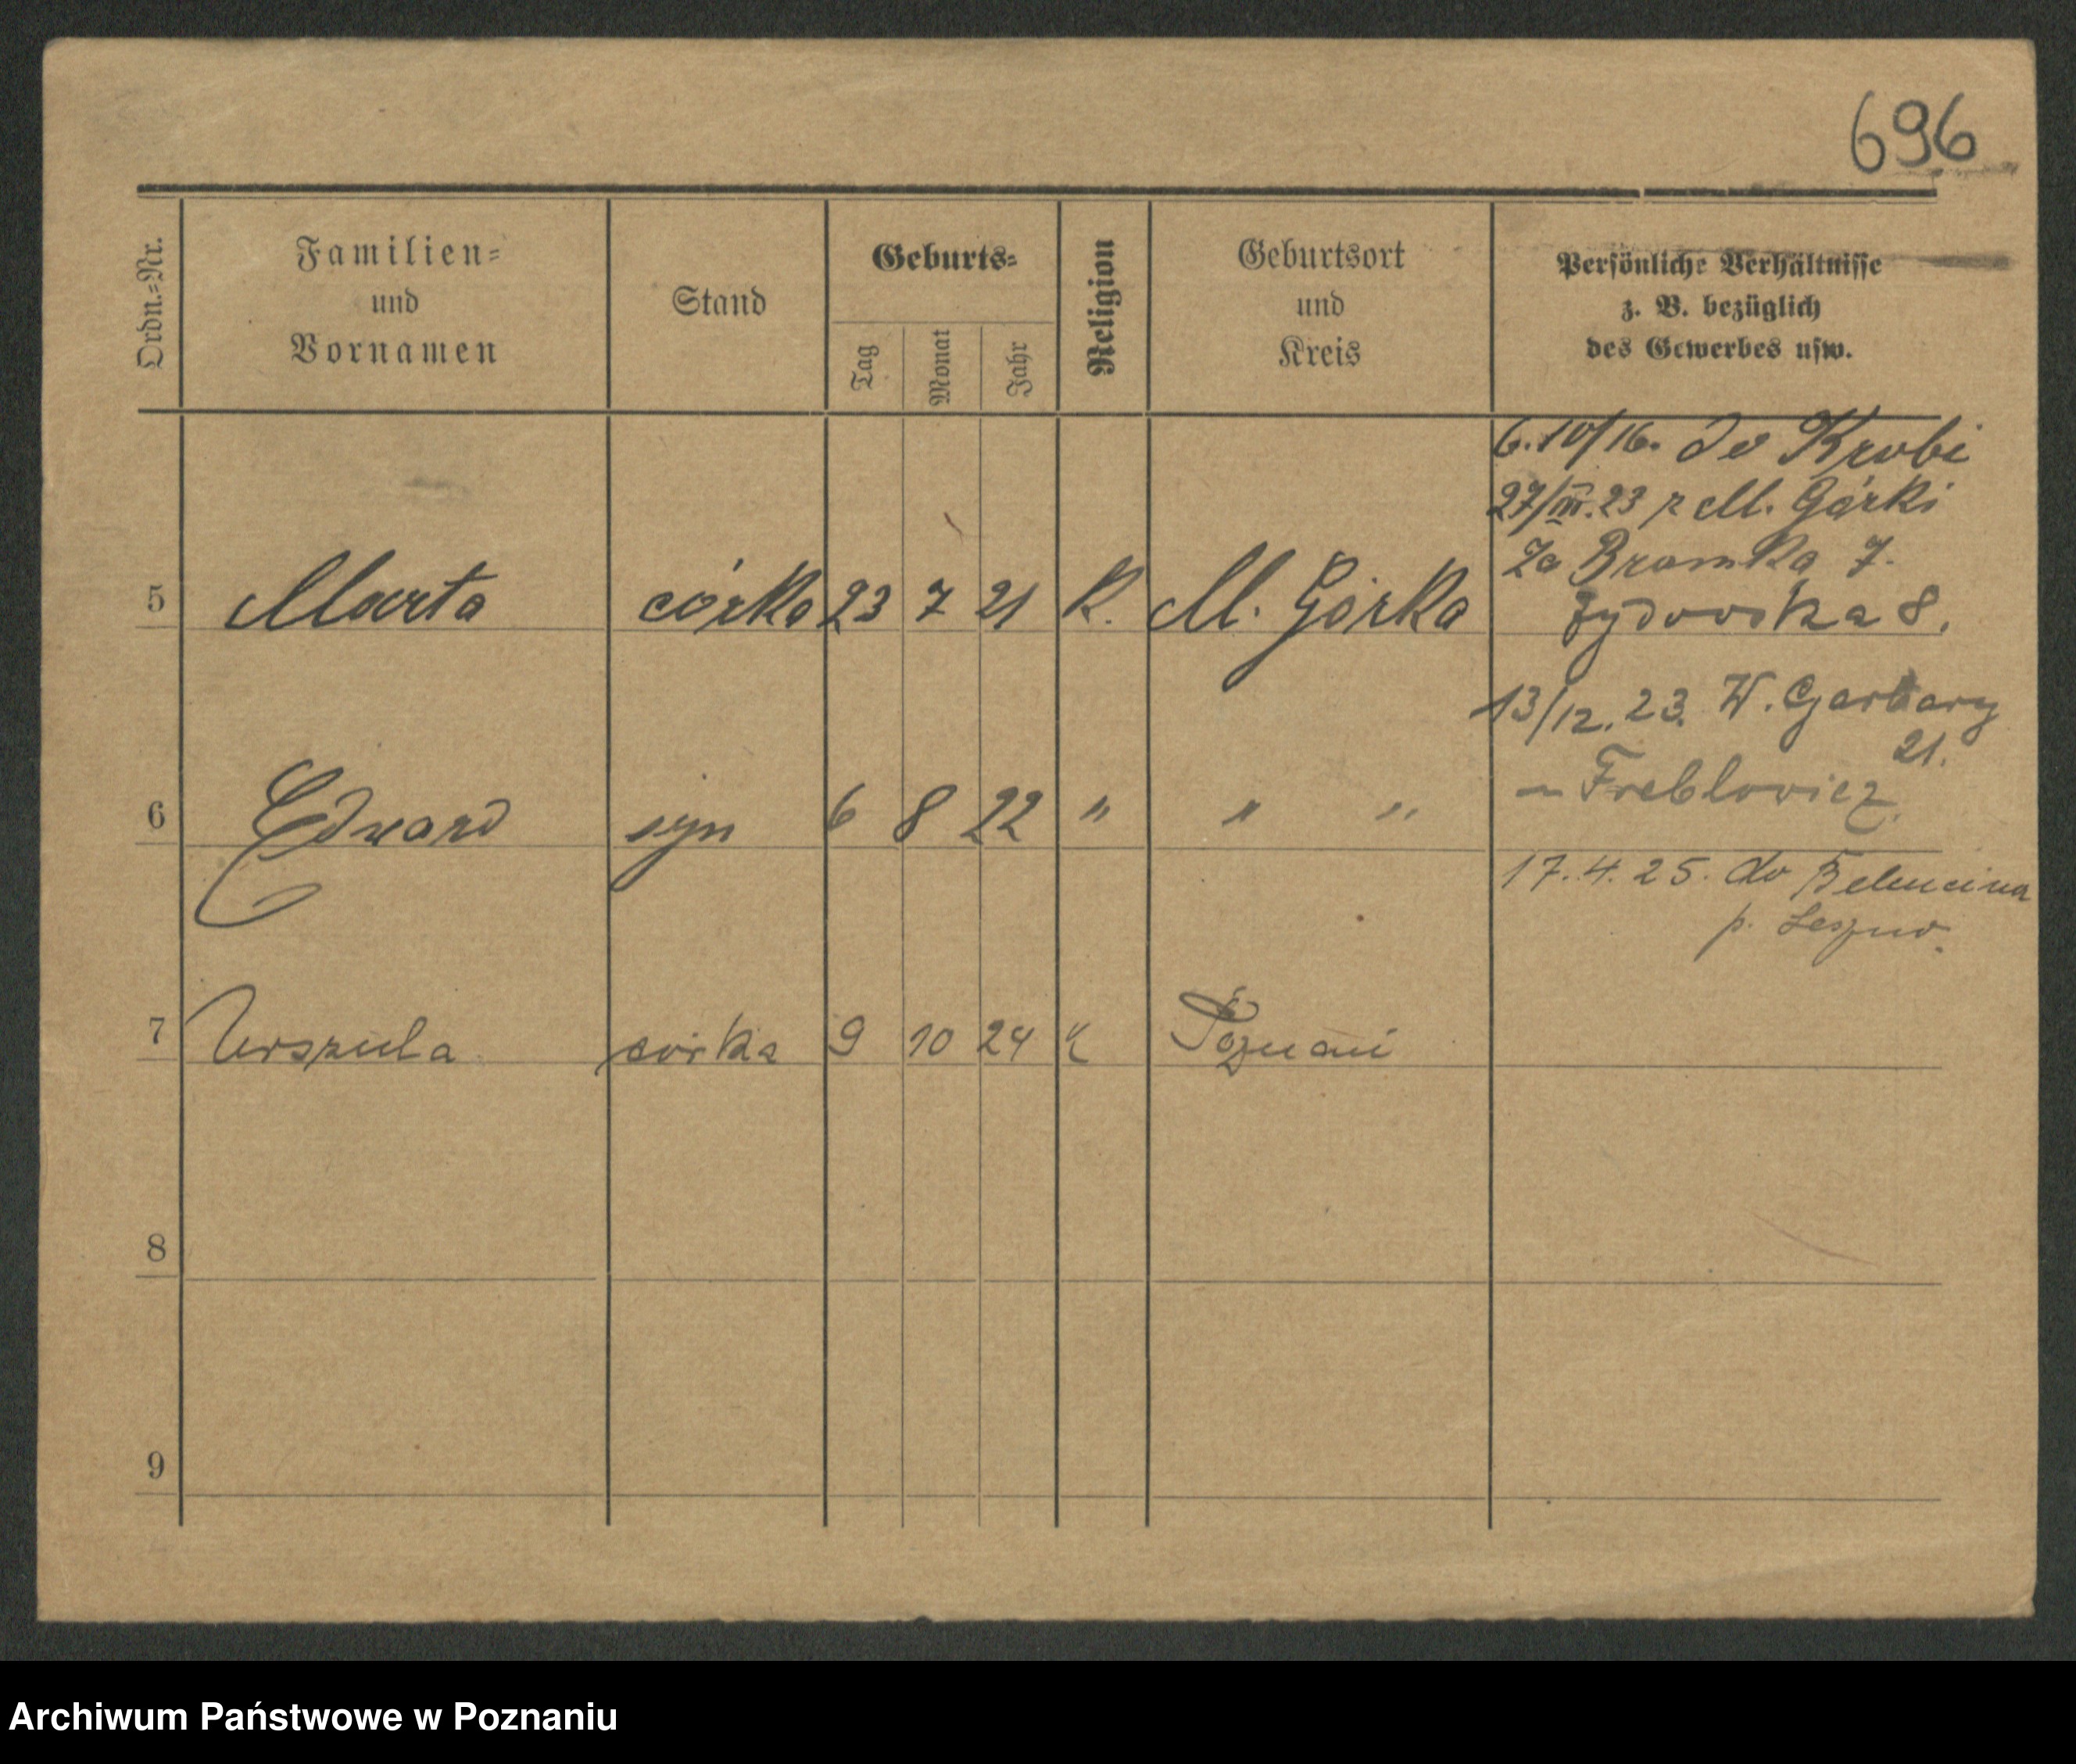 696
Ordn.-Nr.
Familien-
und
Vornamen
Stand
Geburts-
Tag
Monat
Jahr
Religion
Geburtsort
und
Kreis
Persönliche Verhältnisse
z. B. bezüglich
des Gewerbes usw.
6.10/16. do Krobi
27/III.23 z M. Górki
Za Bramką 7.
5 Marta córka 23 7 21 K. M. Górka
Żydowska 8.
13/12.23. W. Garbary
21.
6 Edward syn 6 8 22 " " "
- Freblowicz.
17.4.25. do Belencina
p. Leszno.
7 Urszula córka 9 10 24 K Poznań
8
9
Archiwum Państwowe w Poznaniu